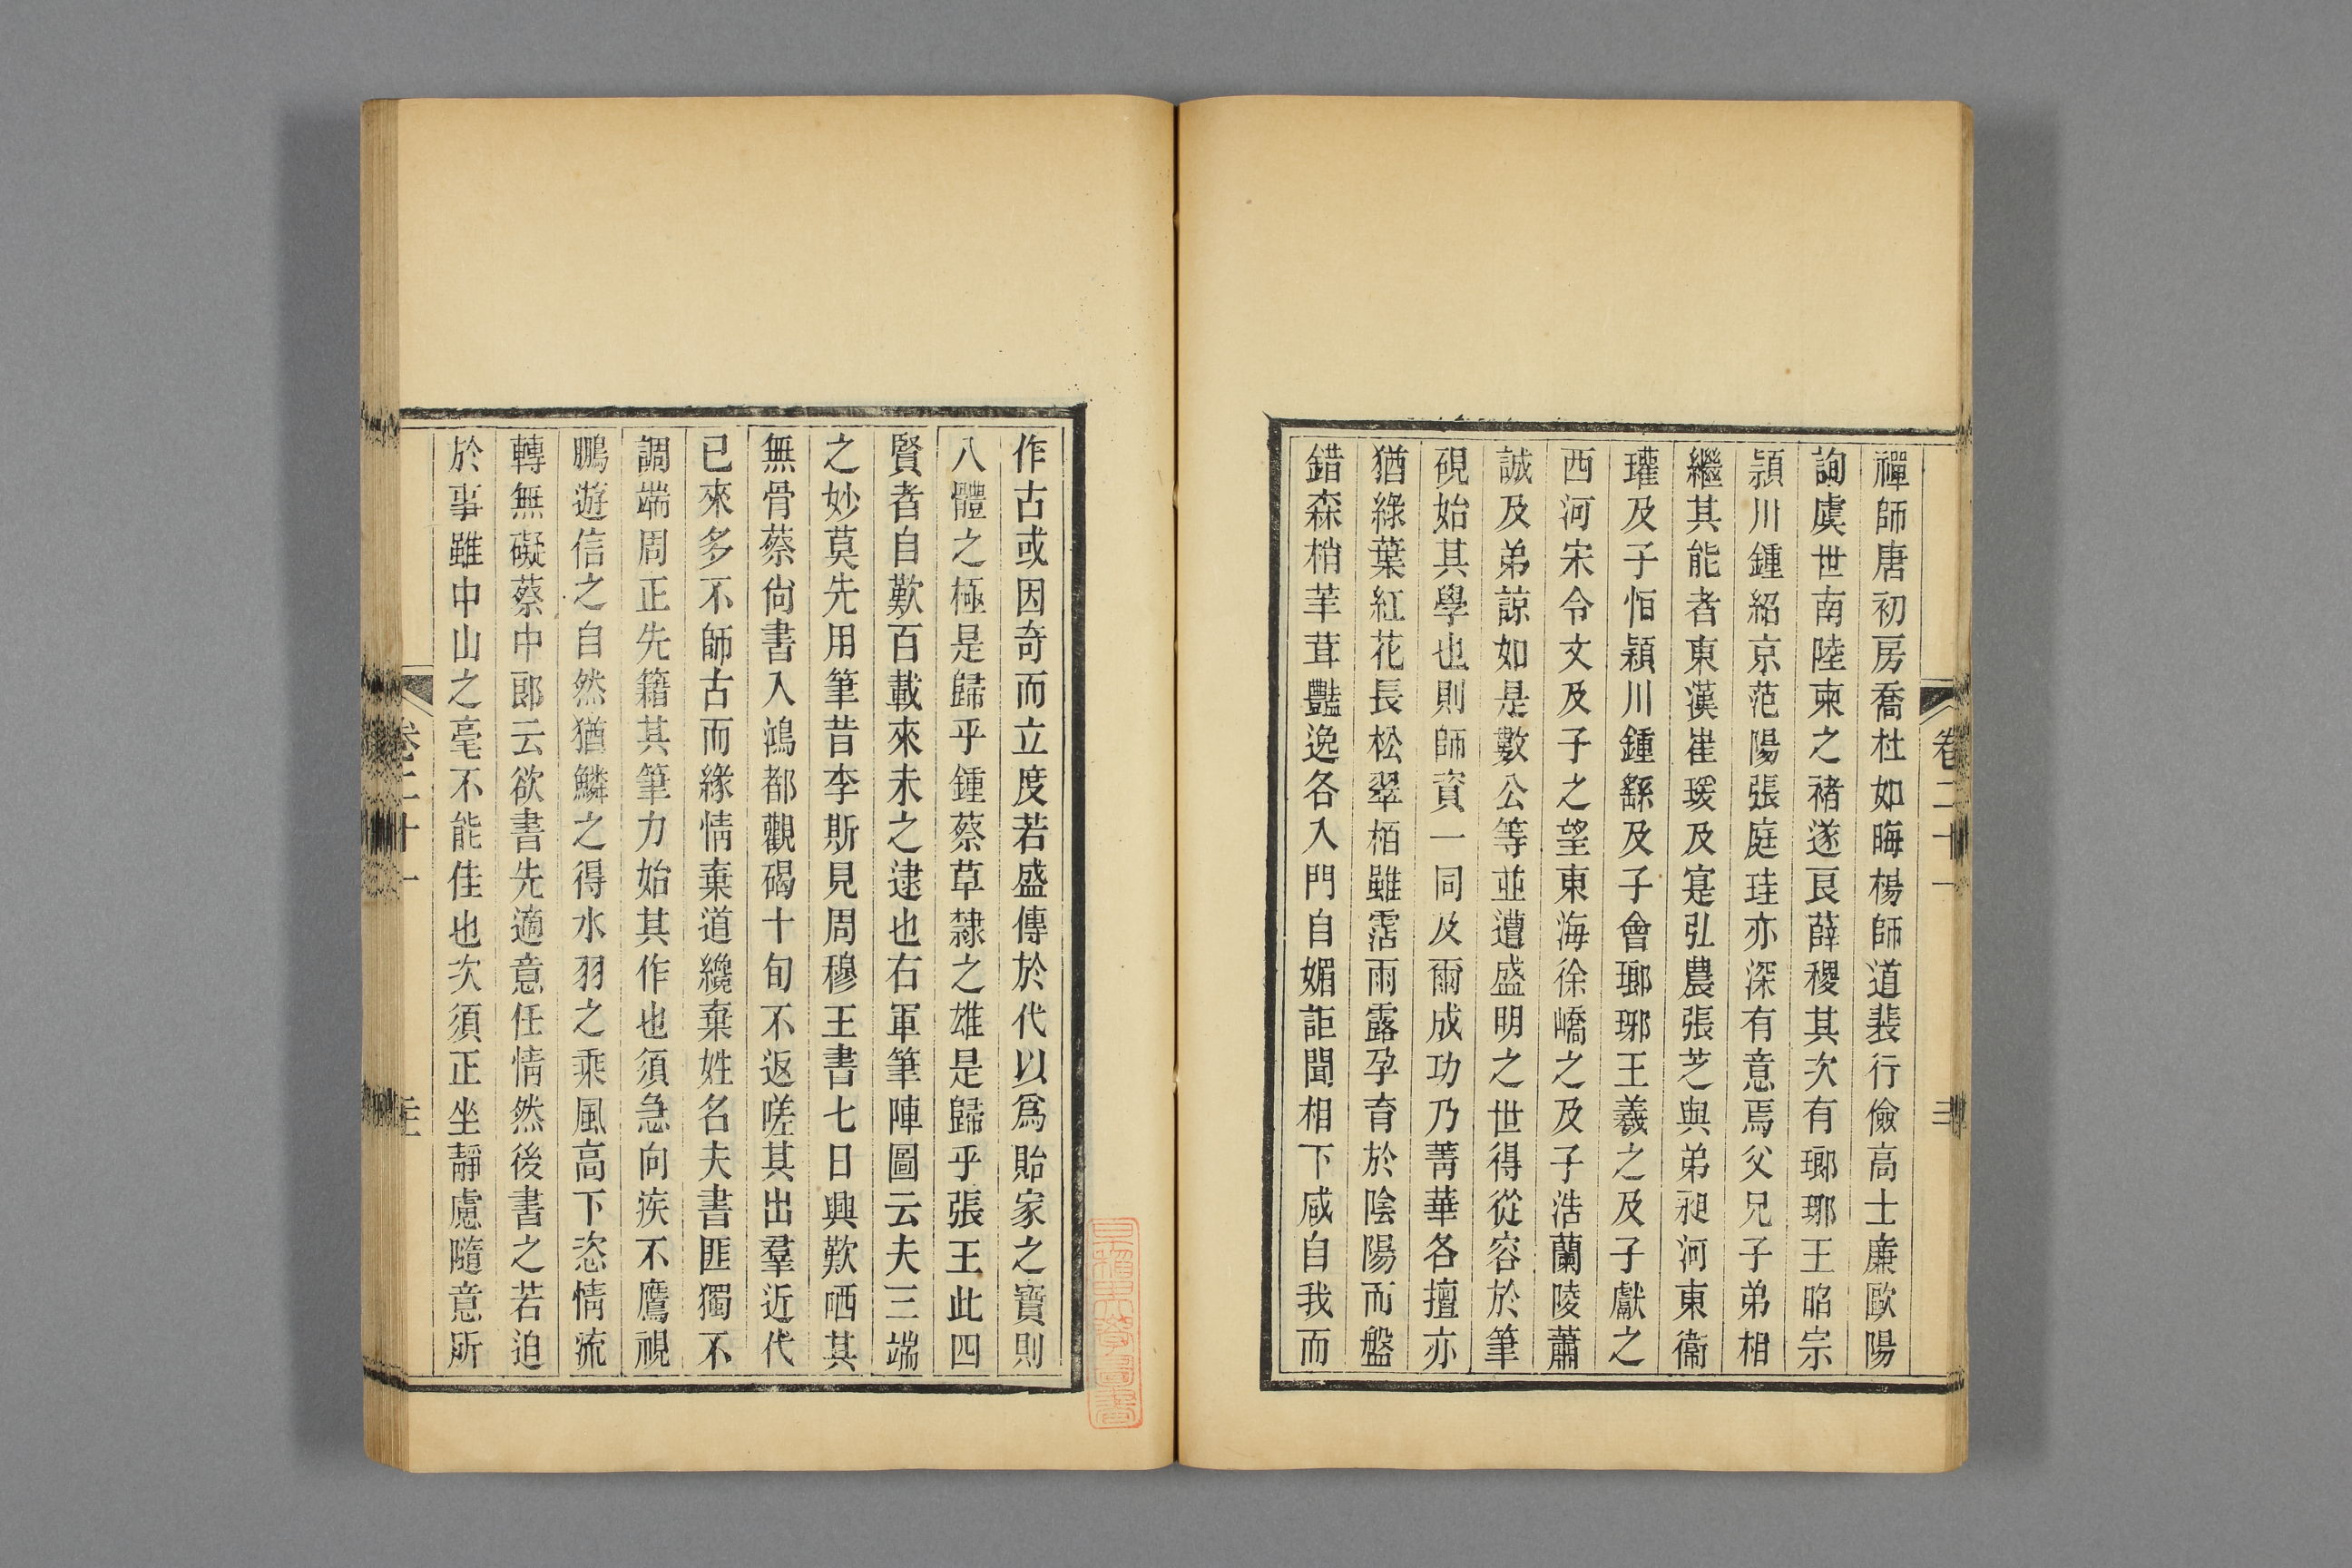 禪師唐初房喬杜如晦楊師道裴行儉高士廉歐陽
詢虞世南陸柬之禇遂良薛稷其次有瑯琊王昭宗
潁川鍾紹京范陽張庭珪亦深有意焉父兄子弟相
繼其能者東漢崔瑗及寔弘農張芝與弟昶河東衞
瓘及子恒潁川鍾繇及子會瑯琊王羲之及子獻之
西河宋令文及子之望東海徐嶠之及子浩蘭陵蕭
誠及弟諒如是數公等並遭盛明之世得從容於筆
硯始其學也則師資一同及爾成功乃菁華各擅亦
猶綠葉紅花長松翠栢雖霑雨露孕育於陰陽而盤
錯森梢芊茸豔逸各入門自媚詎聞相下咸自我而
卷二十一
作古或因奇而立度若盛傳於代以爲貽家之寶則
八體之極是歸乎鍾蔡草隸之雄是歸乎張王此四
賢者自歎百載來未之逮也右軍筆陣圖云夫三端
之妙莫先用筆昔李斯見周穆王書七日興歎晒其
無骨蔡尙書入鴻都觀碣十旬不返嗟其出羣近代
已來多不師古而緣情棄道纔棄姓名夫書匪獨不
調端周正先籍其筆力始其作也須急向疾不鷹視
鵬遊信之自然猶鱗之得水羽之乘風高下恣情流
轉無礙蔡中郎云欲書先適意任情然後書之若迫
於事雖中山之毫不能佳也次須正坐靜慮隨意所
卷二十一